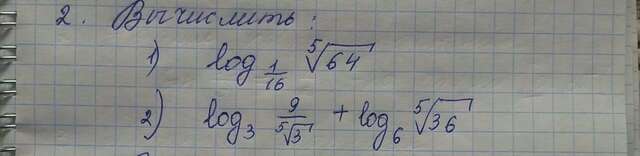 2. Вычислить:
1) log_{1/16} ⁵√64
2) log₃ 9/⁵√3 + log₆ ⁵√36